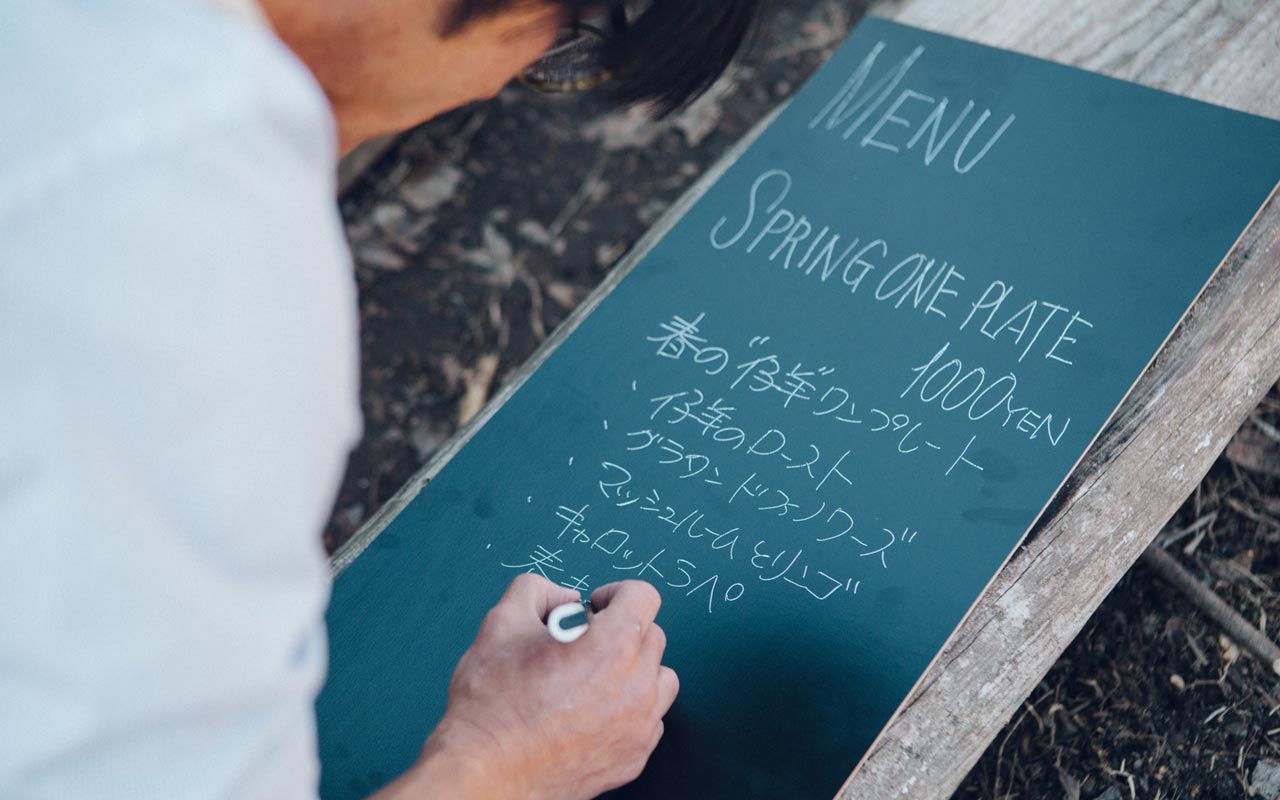 MENU
SPRING ONE PLATE
1000YEN
春の"仔羊"ワンプレート
・仔羊のロースト
・グラウンドスノウワーズ"
・マッシュルームとリーブ"
・キャロットラペ
・春キ